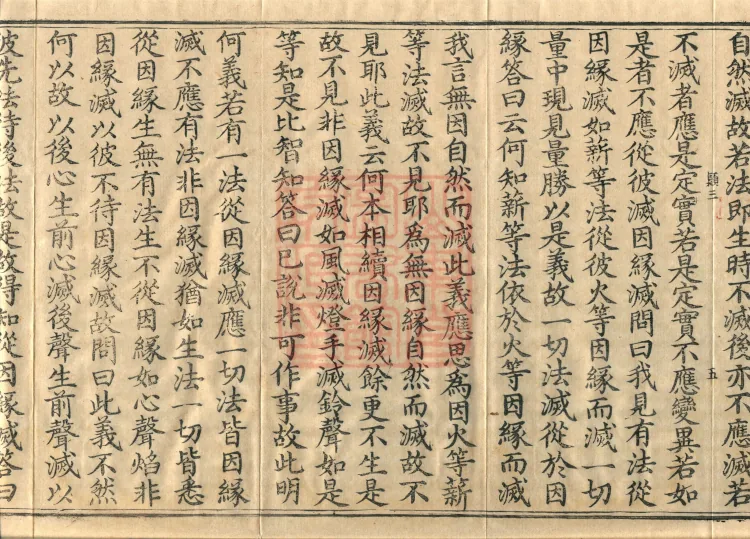 自然滅故若法即生時不滅後亦不應滅若
不滅者應是定實若是定實不應變異若如
類三 五
是者不應從彼滅因緣滅問曰我見有法從
因緣滅如薪等法從彼火等因緣而滅一切
量中現見量勝以是義故一切法滅從於因
緣答曰云何知薪等法依於火等因緣而滅
我言無因自然而滅此義應思為因火等薪
等法滅故不見耶為無因緣自然而滅故不
見耶此義云何本相續因緣滅餘更不生是
故不見非因緣滅如風滅燈手滅鈴聲如是
等知是比智知答曰已說非可作事故此明
何義若有一法從因緣滅應一切法皆因緣
滅不應有法非因緣滅猶如生法一切皆悉
從因緣生無有法生不從因緣如心聲焰非
因緣滅以彼不待因緣滅故問曰此義不然
何以故以後心生前心滅後聲生前聲滅以
彼先法待後法故是故得知從因緣滅答曰